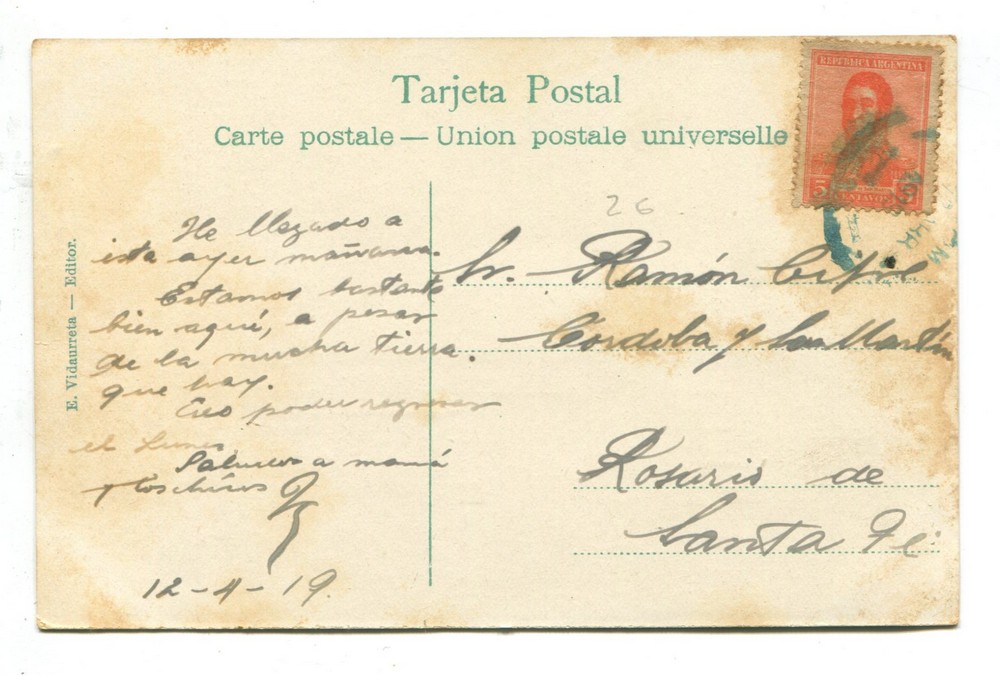 Tarjeta Postal
Carte postale — Union postale universelle
REPÚBLICA ARGENTINA
5
CENTAVOS
5
E. Vidaurreta — Editor.
26
He llegado a
ésta ayer mañana.
Estamos bastante
bien aquí, a pesar
de la mucha tierra
que hay.
Creo poder regresar
el Lunes
Saludos a mamá
y los chicos
12-4-19.
Sr. Ramón
Cordoba y San Martín
Rosario de
Santa Fé